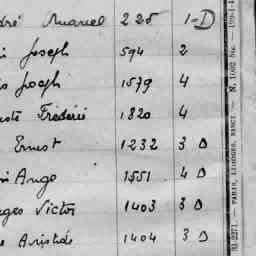 dré Manuel 225 1-D
i Joseph 594 2
is Joseph 1579 4
uste Frédéric 1820 4
Ernest 1232 3 D
ri Ange 1551 4 D
rges Victor 1403 3 D
e Aristide 1404 3 D
31.2271. — PARIS, LIMOGES, NANCY. — N. 1062 bis. — 199-1-4